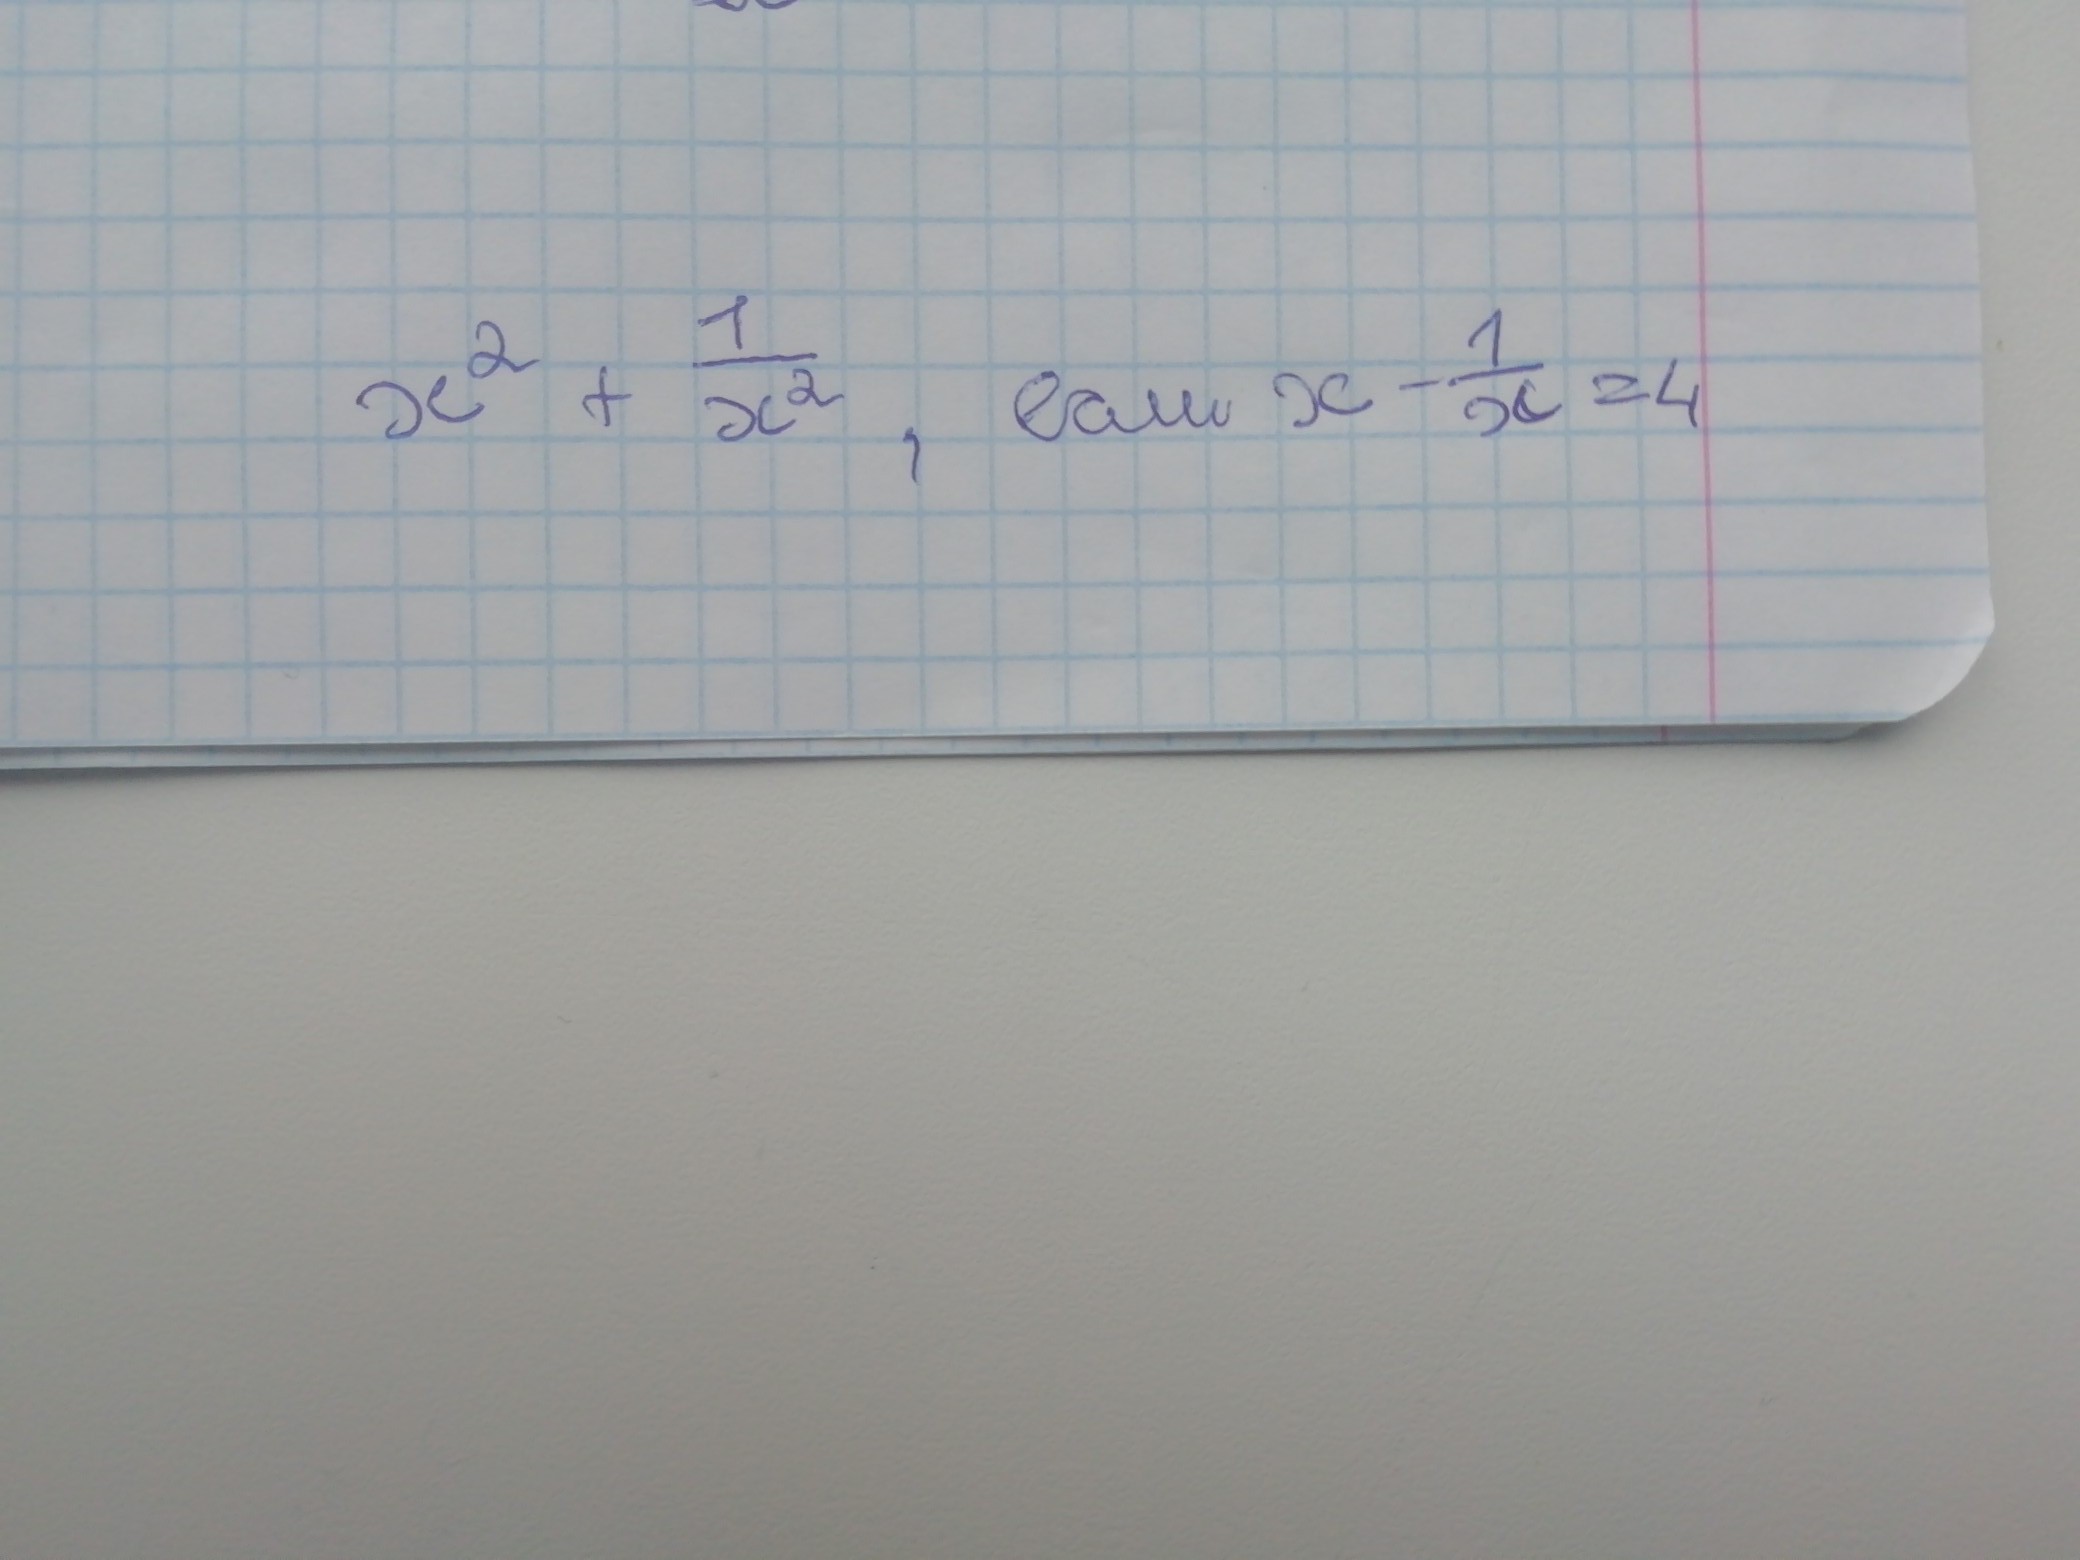 x² + 1/x², если x - 1/x = 4